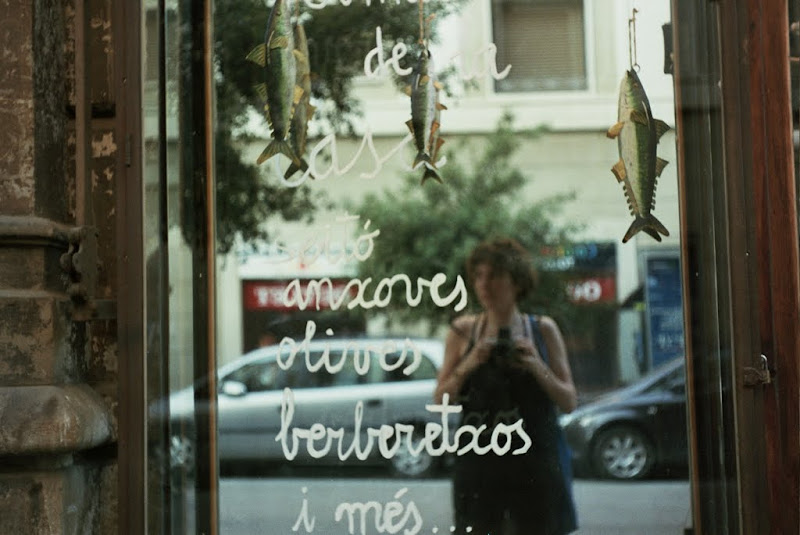 de
casa
seitó
anxoves
olives
berberetxos
i més...